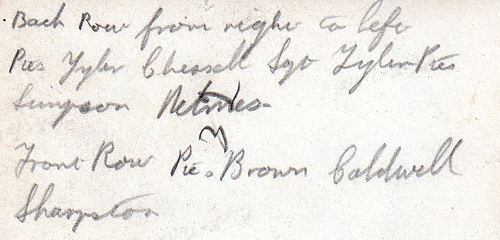 Back Row from right to left
Ptes Tyler Chessell Sgt Tyler Ptes
Simpson
Front Row Pte. Brown Caldwell
Sharpston